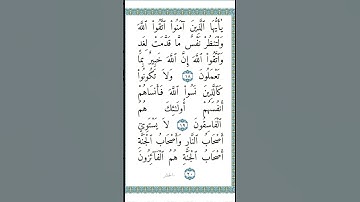 يَٰأَيُّهَا ٱلَّذِينَ آمَنُوا۟ ٱتَّقُوا۟ ٱللَّهَ
وَلْتَنظُرْ نَفْسٌ مَّا قَدَّمَتْ لِغَدٍ
وَٱتَّقُوا۟ ٱللَّهَ إِنَّ ٱللَّهَ خَبِيرٌ بِمَا
تَعْمَلُونَ ١٨ وَلَا تَكُونُوا۟
كَٱلَّذِينَ نَسُوا۟ ٱللَّهَ فَأَنسَاهُمْ
أَنفُسَهُمْ أُولَـٰئِكَ هُمُ
ٱلْفَاسِقُونَ ١٩ لَا يَسْتَوِىٓ
أَصْحَابُ ٱلنَّارِ وَأَصْحَابُ ٱلْجَنَّةِ
أَصْحَابُ ٱلْجَنَّةِ هُمُ ٱلْفَآئِزُونَ
٢٠